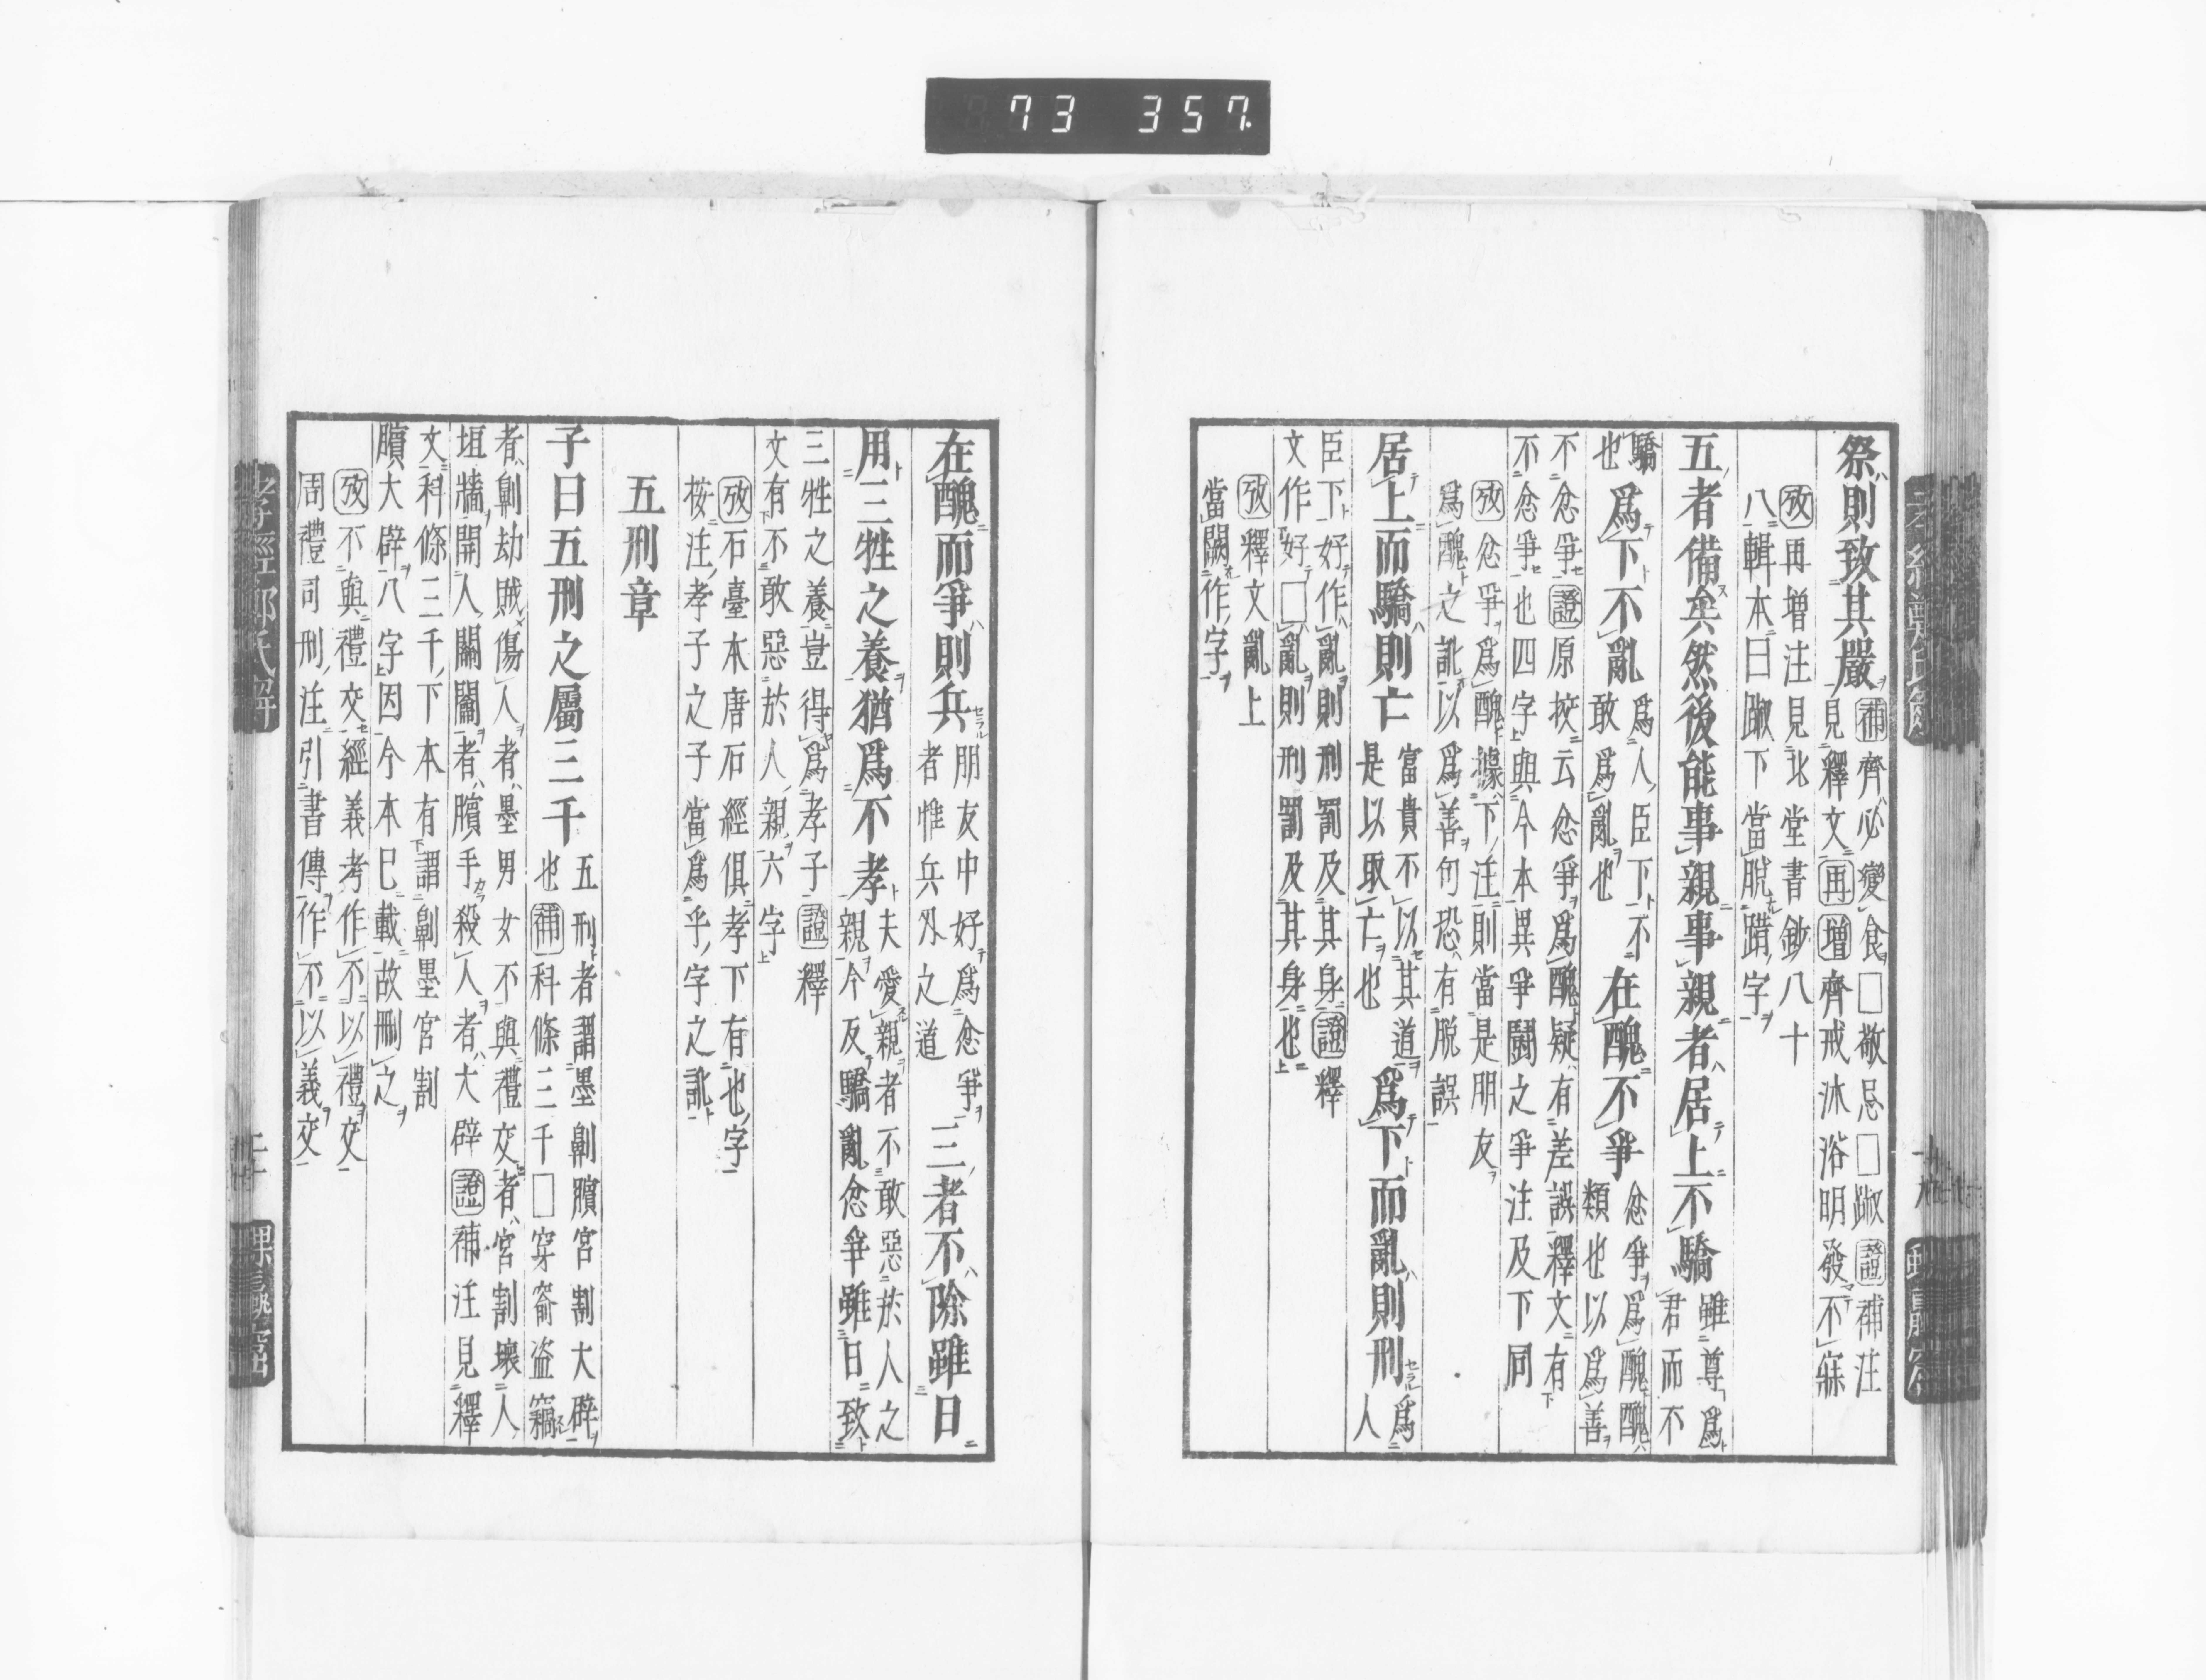 73 357.
祭則致其嚴 補齊必變食□敬忌□踧證補注
見釋文再增齊戒沐浴明發不寐
攷再增注見北堂書鈔八十
八輯本曰踧下當脫踖字
五者備矣然後能事親事親者居上不驕 雖尊爲
君而不
驕
也 爲下不亂 爲人臣下不
敢爲亂也 在醜不爭 忿爭爲醜醜
類也以爲善
不忿爭證原挍云忿爭爲醜疑有差誤釋文有
不忿爭也四字與今本異爭鬪之爭注及下同
攷忿爭爲醜據下注則當是朋友
爲醜之訛以爲善句恐有脫誤
居上而驕則亡 富貴不以其道
是以取亡也 爲下而亂則刑 爲
人
臣下好作亂則刑罰及其身證釋
文作好□亂則刑罰及其身也
攷釋文亂上
當闕作字
在醜而爭則兵 朋友中好爲忿爭
者惟兵外之道 三者不除雖日
用三牲之養猶爲不孝 夫愛親者不敢惡於人之
親今反驕亂忿爭雖日致
三牲之養豈得爲孝子證釋
文有不敢惡於人親六字
攷石臺本唐石經俱孝下有也字
按注孝子之子當爲乎字之訛
五刑章
子曰五刑之屬三千 五刑者謂墨劓臏宮割大辟
也補科條三千□穿窬盜竊
者劓劫賊傷人者墨男女不與禮交者宮割壞人
垣牆開人關闟者臏手殺人者大辟證補注見釋
文科條三千下本有謂劓墨宮割
臏大辟八字因今本巳載故刪之
攷不與禮交經義考作不以禮交
周禮司刑注引書傳作不以義交
孝經鄭氏解
二十